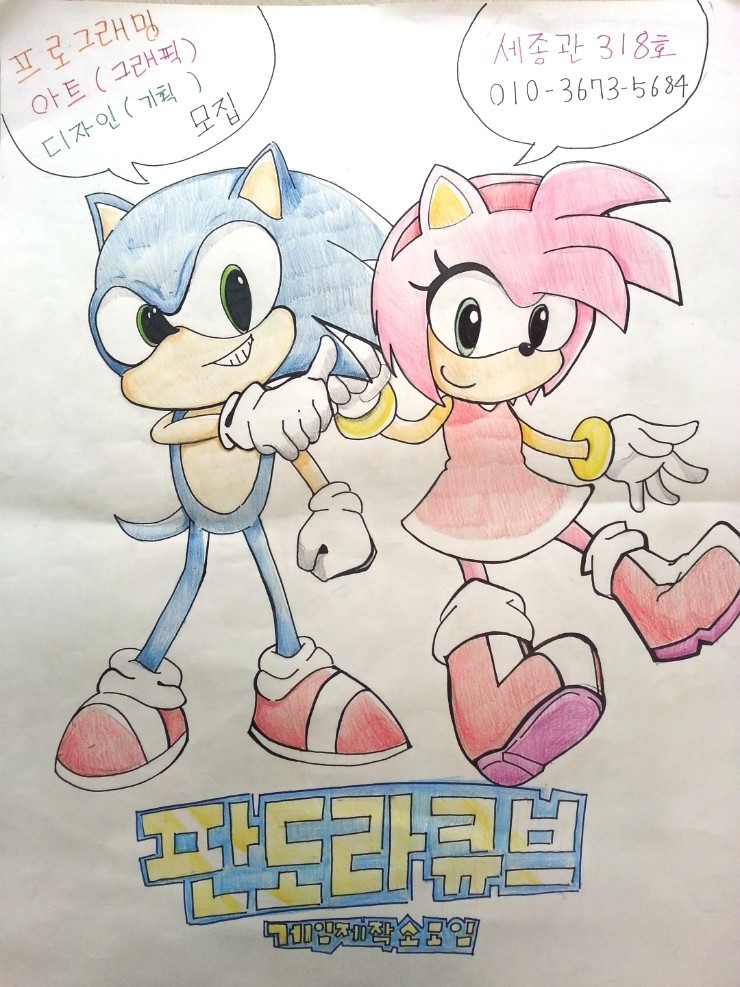 프로그래밍
아트 (그래픽)
디자인 (기획)
모집
세종관 318호
010-3673-5684
판도라큐브
게임제작소모임